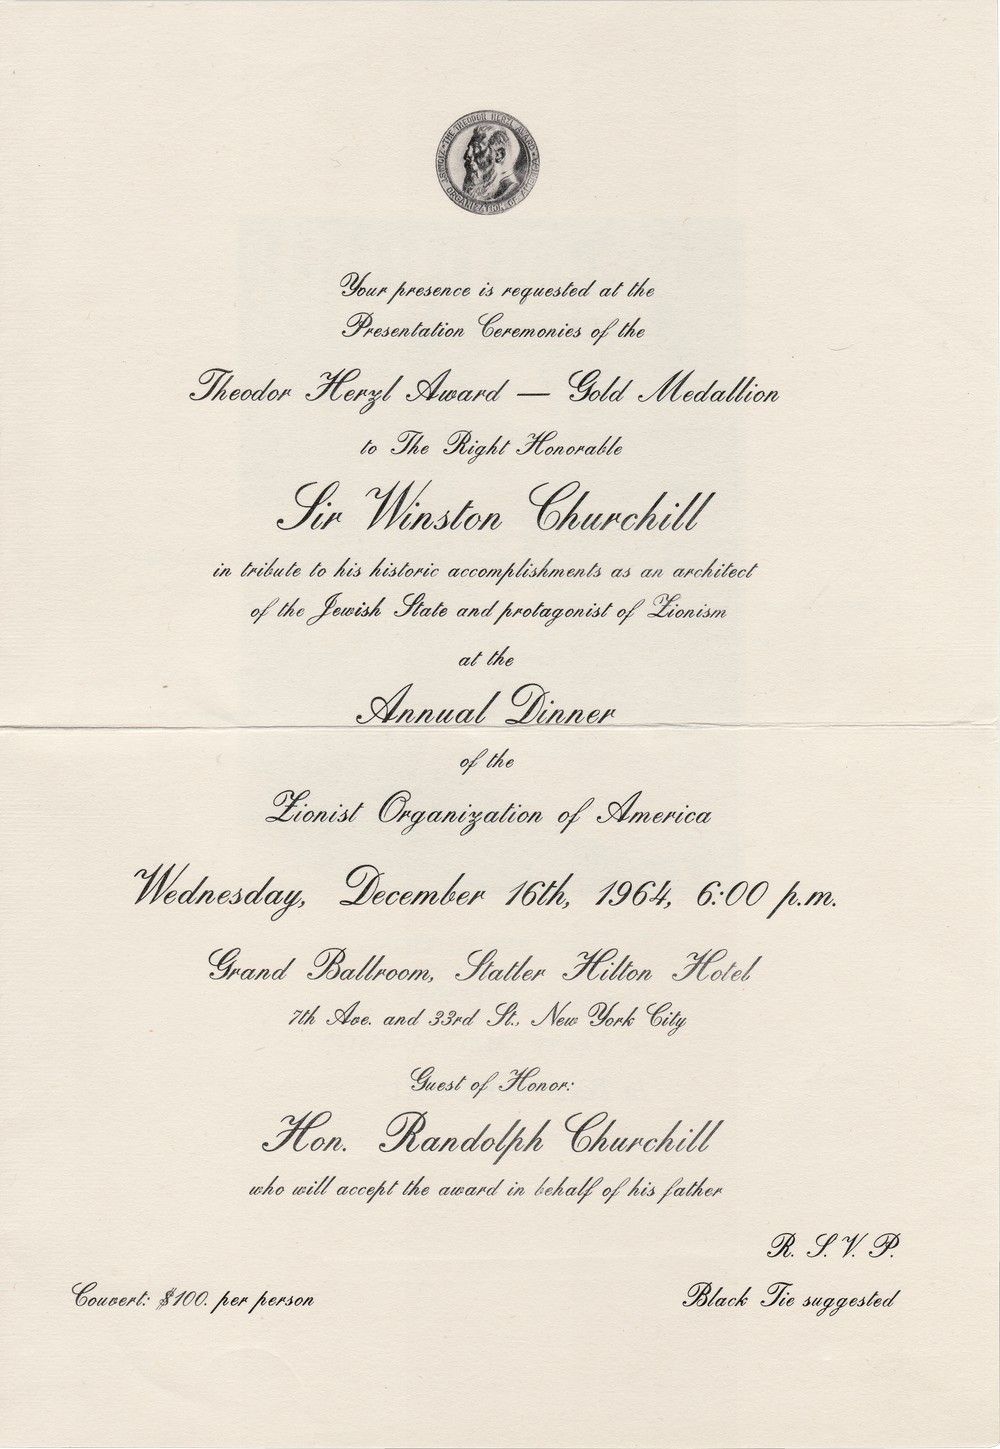 THE THEODOR HERZL AWARD • ZIONIST ORGANIZATION OF AMERICA
Your presence is requested at the
Presentation Ceremonies of the
Theodor Herzl Award — Gold Medallion
to The Right Honorable
Sir Winston Churchill
in tribute to his historic accomplishments as an architect
of the Jewish State and protagonist of Zionism
at the
Annual Dinner
of the
Zionist Organization of America
Wednesday, December 16th, 1964, 6:00 p.m.
Grand Ballroom, Statler Hilton Hotel
7th Ave. and 33rd St., New York City
Guest of Honor:
Hon. Randolph Churchill
who will accept the award in behalf of his father
R. S. V. P.
Couvert: $100. per person
Black Tie suggested